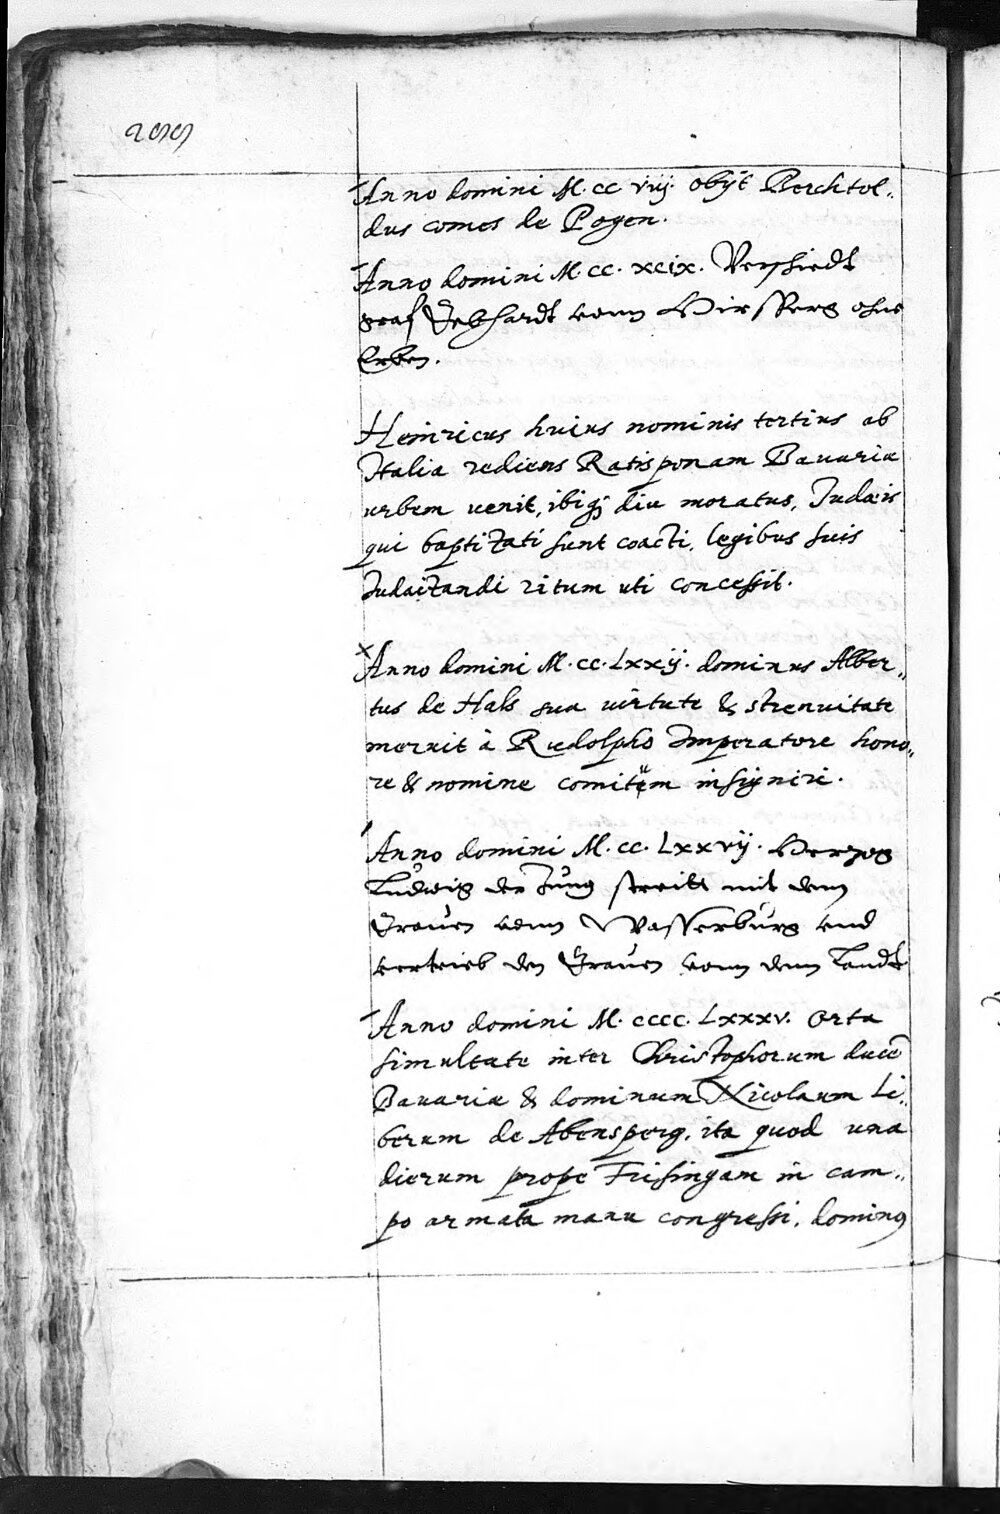 Anno domini M. cc viij. obijt Berchtol„
dus comes de Pogen.
Anno domini M. cc. xcix. Verschiedt
graf Gebhardt vonn Hirsperg ohne
Erben.
Heinricus huius nominis tertius ab
Italia rediens Ratisponam Bauariæ
urbem venit, ibiq; diu moratus, Judæis
qui baptizati sunt coacti, legibus suis
Judaizandi ritum uti concessit.
Anno domini M. cc. Lxxij. dominus Alber„
tus de Hals sua virtute & strenuitate
meruit à Rudolpho Imperatore hono„
re & nomine comitum insigniri.
Anno domini M. cc. Lxxvij. Herzog
Ludwig der Jung streitt mit dem
Grauen vonn Wasserburg vnd
vertrieb den Grauen vonn dem Landt
Anno domini M. cccc. Lxxxv. Orta
simultate inter Christophorum ducē
Bauariæ & dominum Nicolaum Li„
berum de Abensperg, ita quod una
dierum prope Frisingam in cam„
po armata manu congressi, dominꝰ